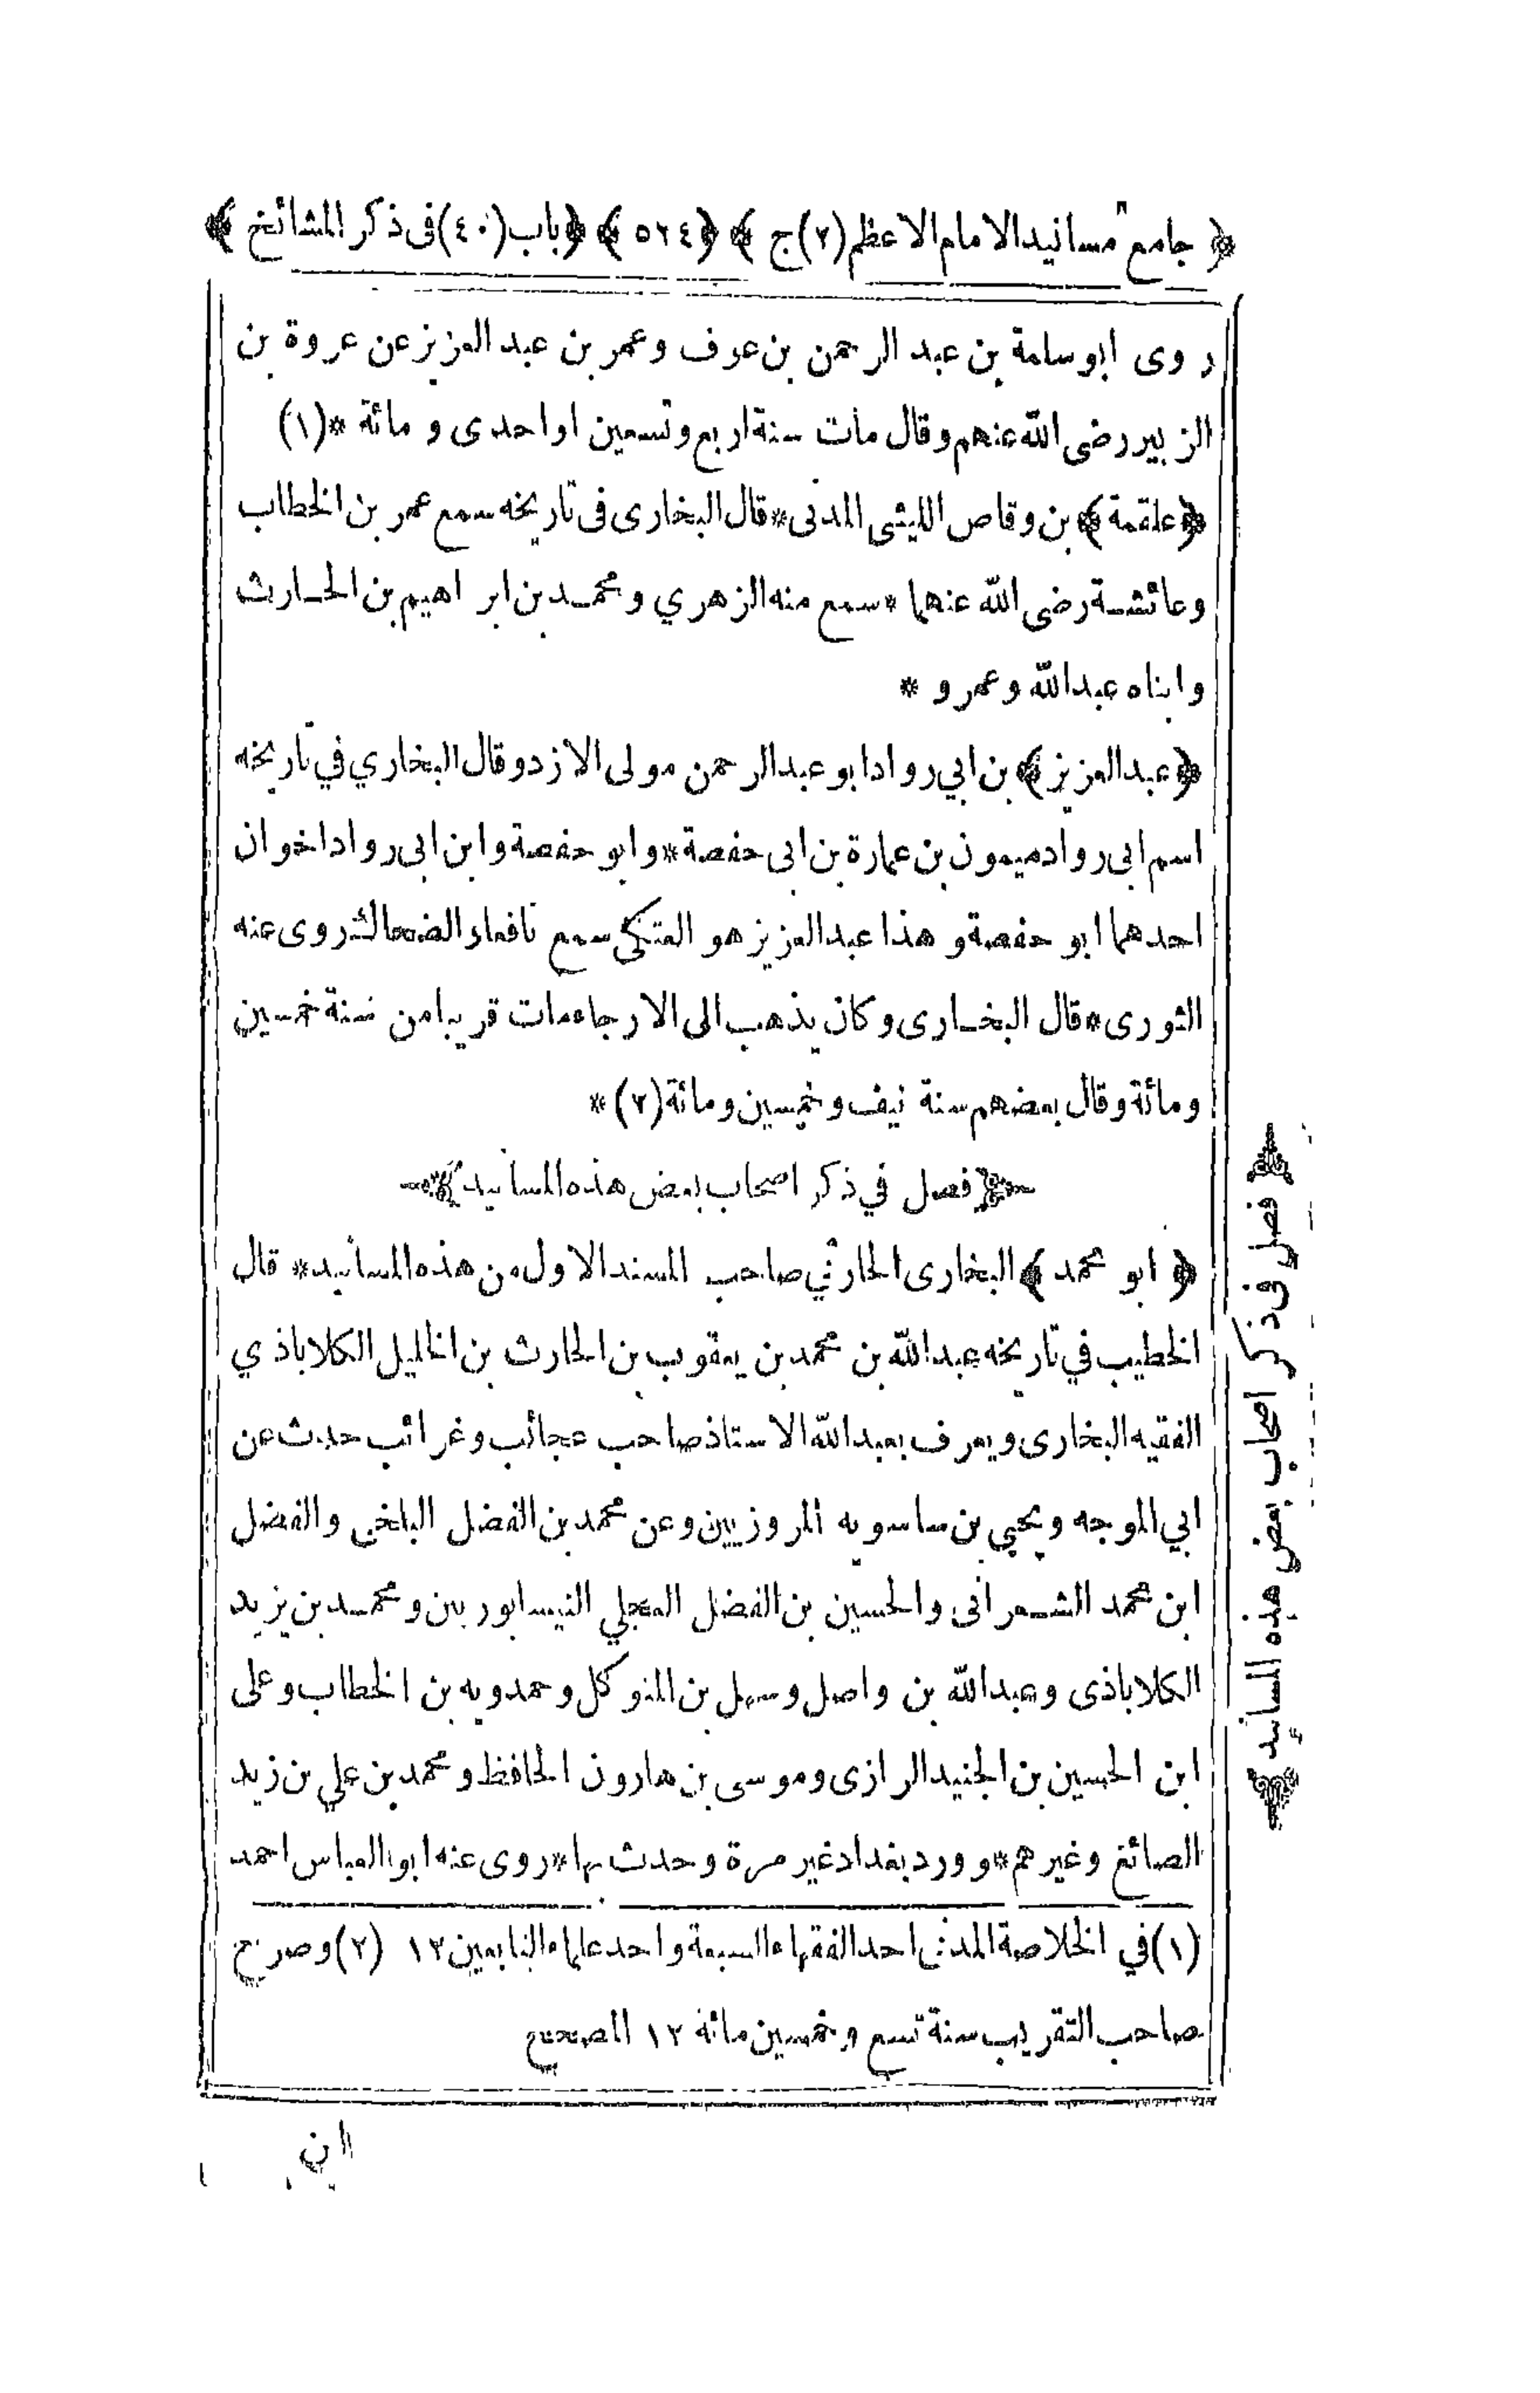 ﴿ جامع مسانيد الامام الاعظم (٢) ج ﴾ ﴿ ٥٢٤ ﴾ ﴿ باب (٤٠) فى ذكر المشائخ ﴾
روى ابو سلمة بن عبد الرحمن بن عوف وعمر بن عبد العزيز عن عروة بن
الزبير رضى الله عنهم وقال مات سنة اربع وتسعين او احدى و مائة * (١)
﴿ علقمة ﴾ بن وقاص الليثى المدنى * قال البخارى فى تاريخه سمع عمر بن الخطاب
وعائشة رضى الله عنهما * سمع منه الزهري ومحمد بن ابراهيم بن الحارث
وابناه عبد الله وعمرو *
﴿ عبد العزيز ﴾ بن ابي رواد ابو عبد الرحمن مولى الازد وقال البخاري في تاريخه
اسم ابى رواد ميمون بن عمارة بن ابى حفصة * وابو حفصة وابن ابى رواد اخوان
احدهما ابو حفصة و هذا عبد العزيز هو العتكى سمع نافعا و الضحاك روى عنه
الثورى * قال البخارى وكان يذهب الى الارجاء مات قريبا من سنة خمسين
ومائة وقال بعضهم سنة نيف وخمسين ومائة (٢) *
﴿ فصل في ذكر اصحاب بعض هذه المسانيد ﴾
﴿ ابو محمد ﴾ البخارى الحارثي صاحب المسند الاول من هذه المسانيد * قال
الخطيب في تاريخه عبد الله بن محمد بن يعقوب بن الحارث بن الخليل الكلاباذي
الفقيه البخارى ويعرف بعبد الله الاستاذ صاحب عجائب وغرائب حدث عن
ابي الموجه ويحيي بن ساسويه المروزيين وعن محمد بن الفضل البلخى والفضل
ابن محمد الشعرانى والحسين بن الفضل العجلي النيسابوريين ومحمد بن يزيد
الكلاباذى وعبد الله بن واصل وسهل بن المتوكل وحمدويه بن الخطاب وعلى
ابن الحسين بن الجنيد الرازى وموسى بن هارون الحافظ ومحمد بن علي بن زيد
الصائغ وغيرهم * وورد بغداد غير مرة وحدث بها * روى عنه ابو العباس احمد
(١) في الخلاصة المدني احد الفقهاء السبعة واحد علماء التابعين ١٢ (٢) وصرح
صاحب التقريب سنة تسع وخمسين مائة ١٢ المصحح
ابن
﴿ فصل فى ذكر اصحاب بعض هذه المسانيد ﴾